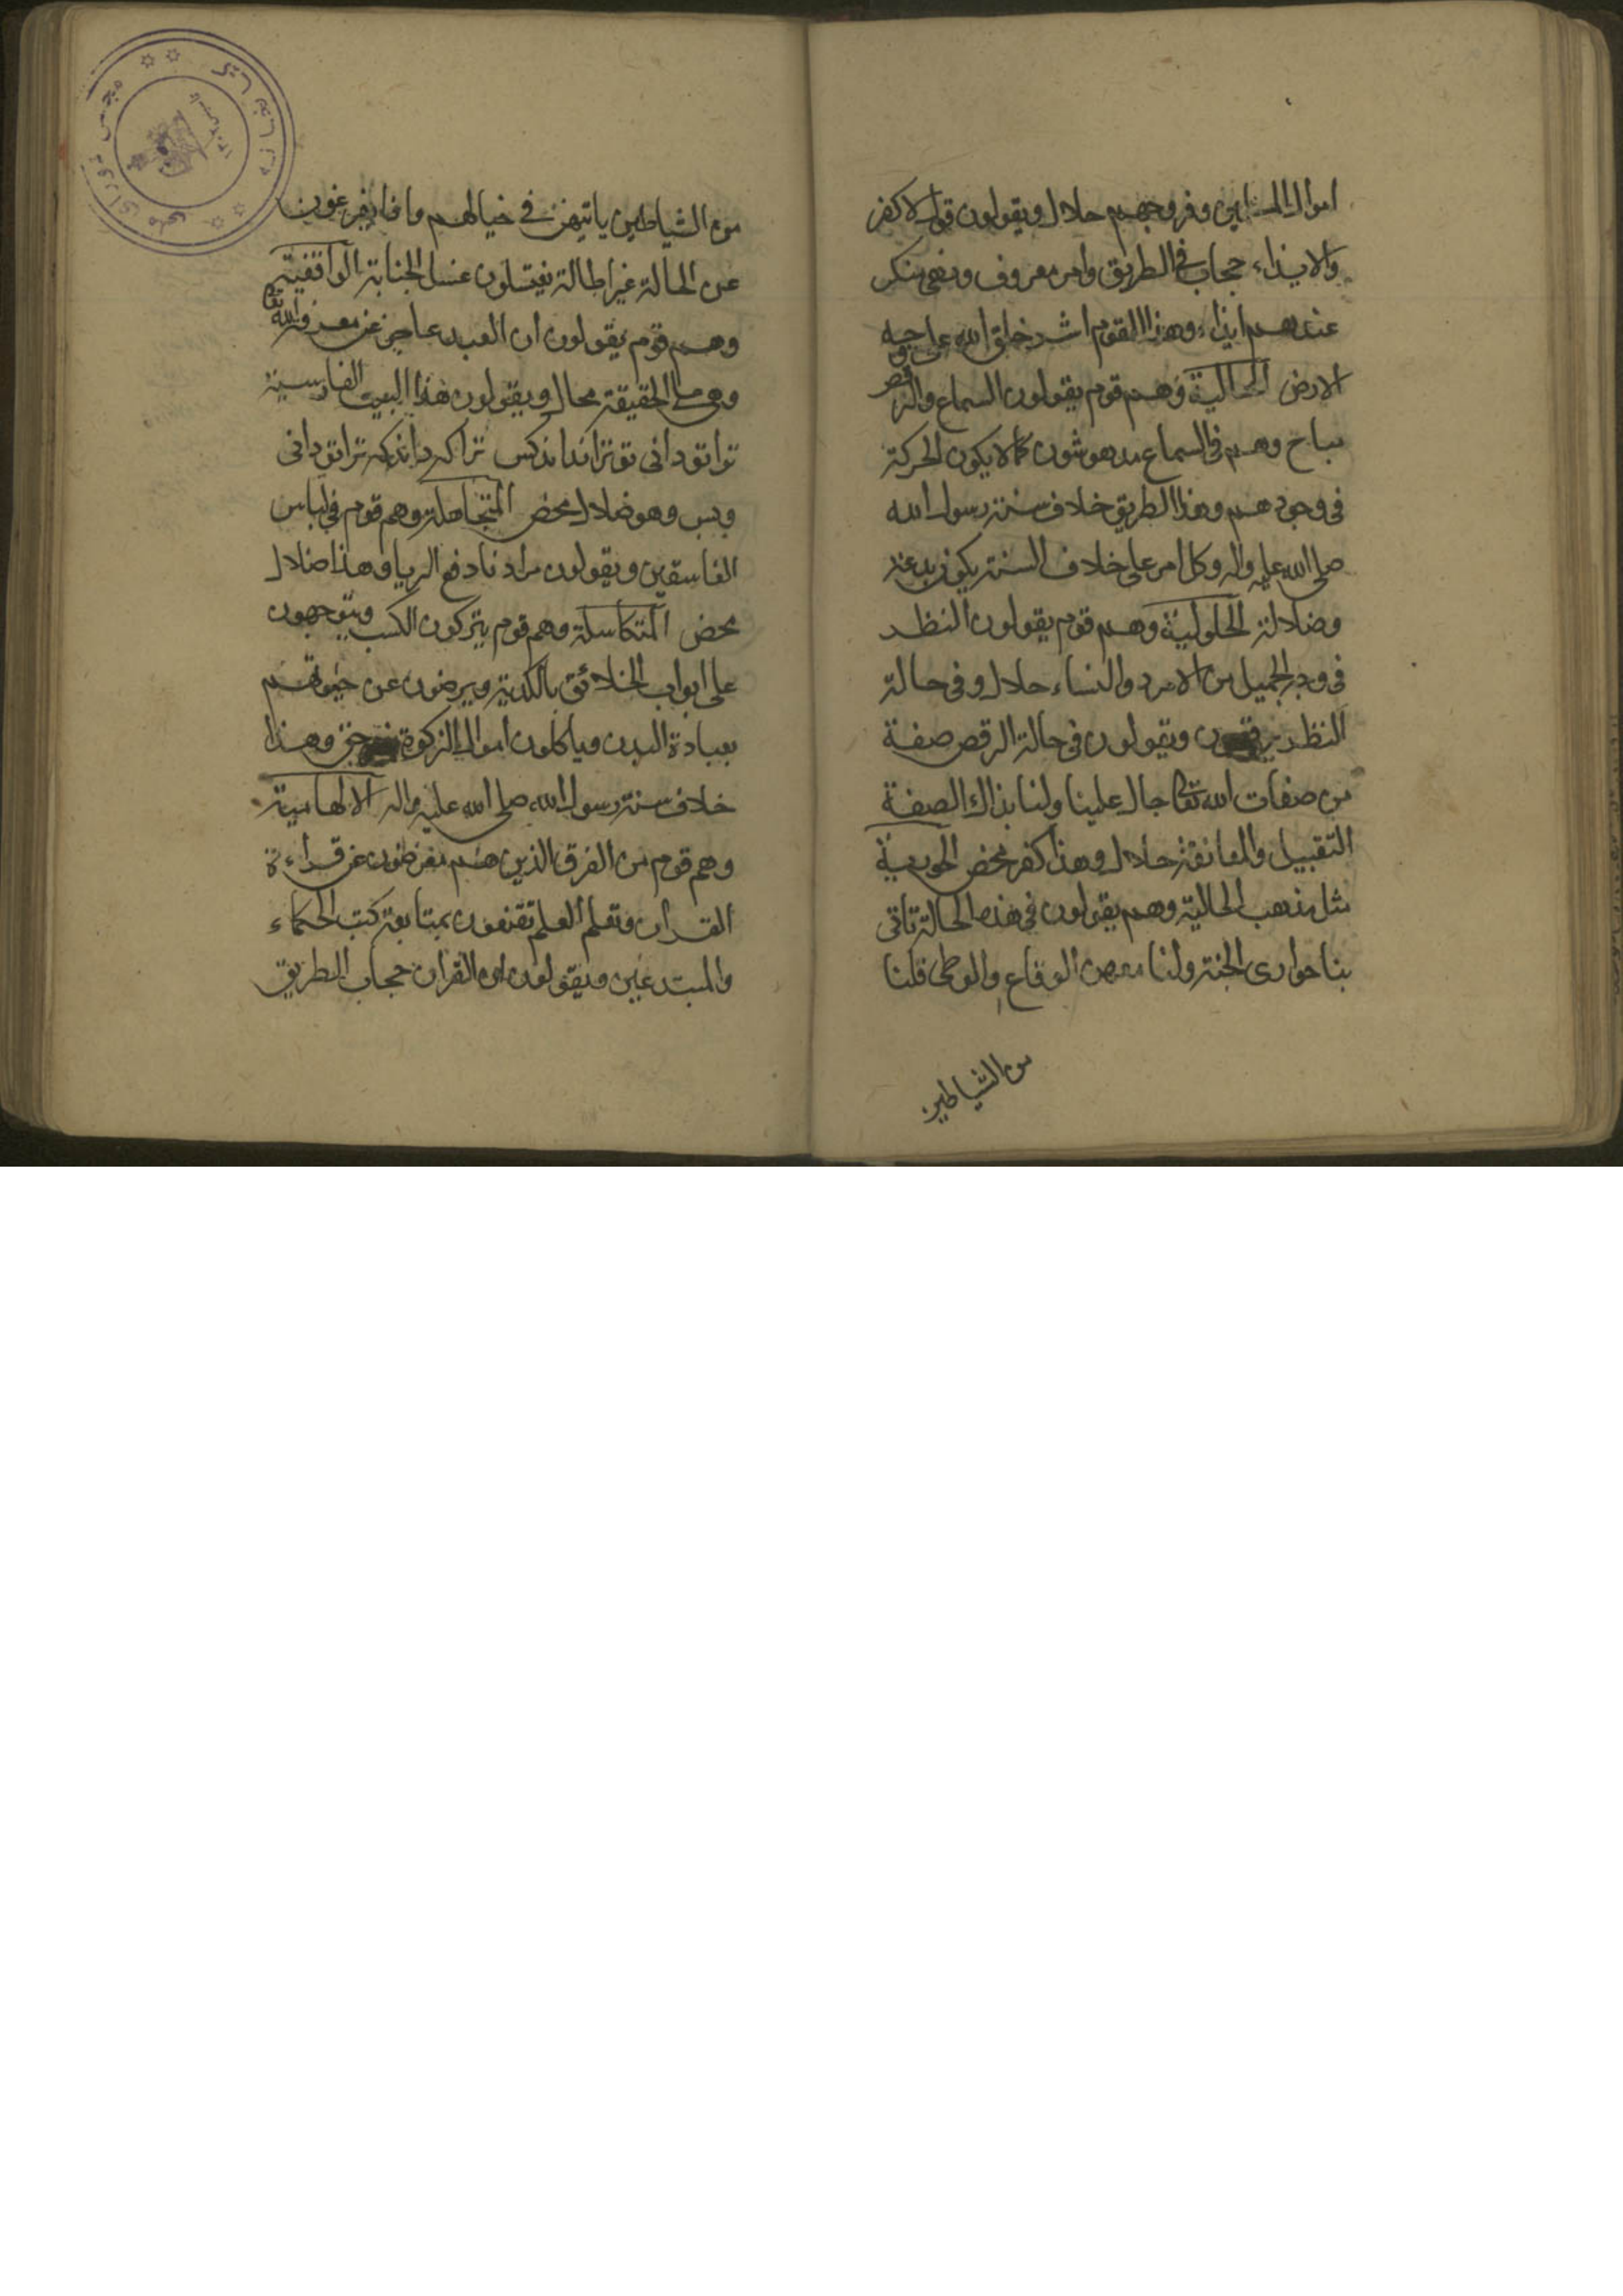 اموال المسلمين وفروجهم حلال ويقولون قول الاكفر
والايذاء حجاب فى الطريق وامر معروف ونهى منكر
عندهم ايذاء وهذا القوم اشد خلق الله على وجه
الارض الحالية وهم قوم يقولون السماع والرقص
مباح وهم فى السماع مدهوشون كما لا يكون الحركة
فى وجودهم وهذا الطريق خلاف سنة رسول الله
صلى الله عليه واله وكل امر على خلاف السنة يكون بدعة
وضلالة الحلولية وهم قوم يقولون النظر
فى وجه الجميل من الامرد والنساء حلال وفى حالة
النظر يرقصون ويقولون فى حالة الرقص صفة
من صفات الله تعالى حال علينا ولنا بذاك الصفة
التقبيل والمعانقة حلال وهذا كفر محض الحورية
مثل مذهب الحالية وهم يقولون فى هذه الحالة تاتى
بنا حوارى الجنة ولنا معهن الوقاع والوطى قلنا
من الشياطين
من الشياطين ياتيهن فى خيالهم وما فا يفرغون
عن الحالة غير اطالة يغتسلون غسل الجنابة الواقفية
وهم قوم يقولون ان العبد عاجز عن معرفة الله تعالى
وهى على الحقيقة محال ويقولون هذا البيت الفارسية
تو اتو دانى تو ترا نداند كس ترا كه داند كه ترا تو دانى
وبس وهو ضلال محض المتجاهلة وهم قوم فى لباس
الفاسقين ويقولون مرادنا دفع الريا وهذا ضلال
محض المتكاسلة وهم قوم يتركون الكسب ويتوجهون
على ابواب الخلائق بالكدية ويرضون عن حيوتهم
بعبادة البدن وياكلون اموال الزكوة وهذا
خلاف سنة رسول الله صلى الله عليه واله الالهامية
وهم قوم من الفرق الذين هم معرضون عن قراءة
القران وتعلم العلم يقنعون بمتابعة كتب الحكماء
والمبتدعين ويقولون ان القران حجاب الطريق